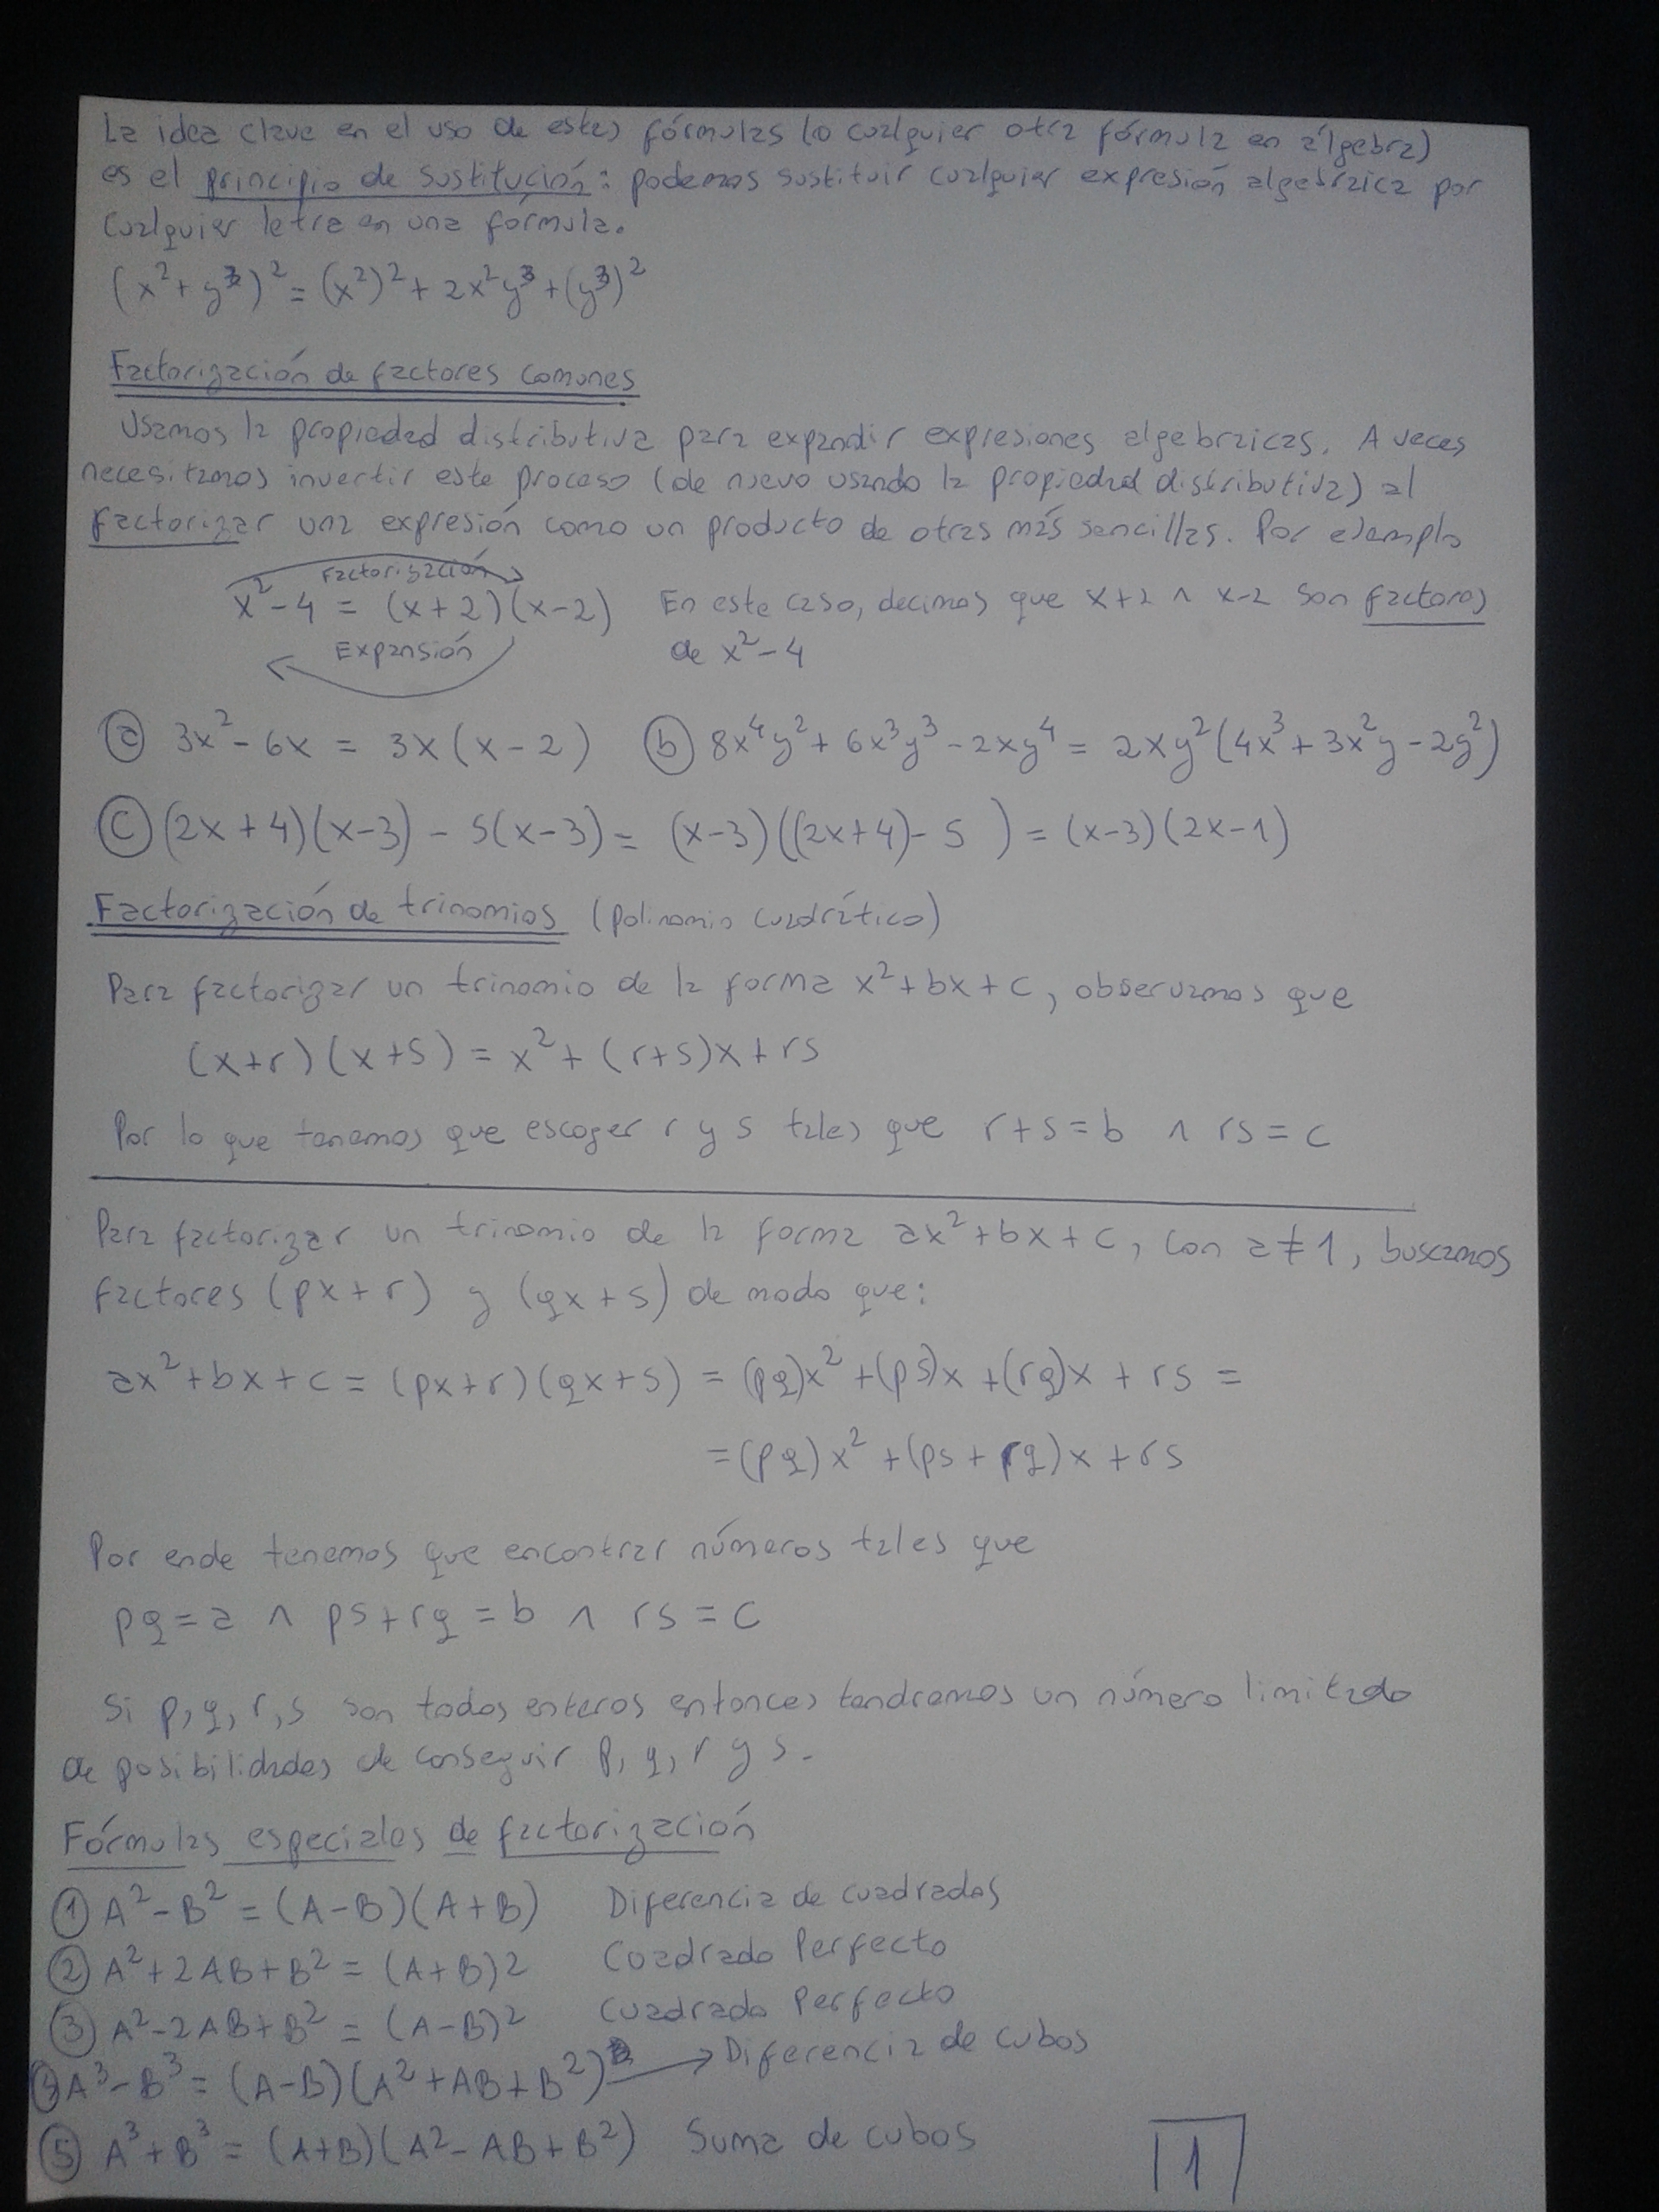 La idea clave en el uso de estas fórmulas (o cualquier otra fórmula en álgebra)
es el principio de sustitución: podemos sustituir cualquier expresión algebraica por
cualquier letra en una fórmula.
(x²+y³)² = (x²)² + 2x²y³ + (y³)²
Factorización de factores comunes
Usamos la propiedad distributiva para expandir expresiones algebraicas. A veces
necesitamos invertir este proceso (de nuevo usando la propiedad distributiva) al
factorizar una expresión como un producto de otras más sencillas. Por ejemplo
Factorización
x²-4 = (x+2)(x-2) En este caso, decimos que x+2 ∧ x-2 son factores
Expansión de x²-4
(a) 3x²-6x = 3x(x-2) (b) 8x⁴y²+6x³y³-2xy⁴ = 2xy²(4x³+3x²y-2y²)
(c) (2x+4)(x-3) - 5(x-3) = (x-3)((2x+4)-5) = (x-3)(2x-1)
Factorización de trinomios (polinomio cuadrático)
Para factorizar un trinomio de la forma x²+bx+c, observamos que
(x+r)(x+s) = x²+(r+s)x+rs
Por lo que tenemos que escoger r y s tales que r+s=b ∧ rs=c
Para factorizar un trinomio de la forma ax²+bx+c, con a≠1, buscamos
factores (px+r) y (qx+s) de modo que:
ax²+bx+c = (px+r)(qx+s) = (pq)x²+(ps)x+(rq)x+rs =
= (pq)x²+(ps+rq)x+rs
Por ende tenemos que encontrar números tales que
pq=a ∧ ps+rq=b ∧ rs=c
Si p, q, r, s son todos enteros entonces tendremos un número limitado
de posibilidades de conseguir p, q, r y s.
Fórmulas especiales de factorización
(1) A²-B² = (A-B)(A+B) Diferencia de cuadrados
(2) A²+2AB+B² = (A+B)2 Cuadrado Perfecto
(3) A²-2AB+B² = (A-B)² Cuadrado Perfecto
(4) A³-B³ = (A-B)(A²+AB+B²) → Diferencia de cubos
(5) A³+B³ = (A+B)(A²-AB+B²) Suma de cubos
1